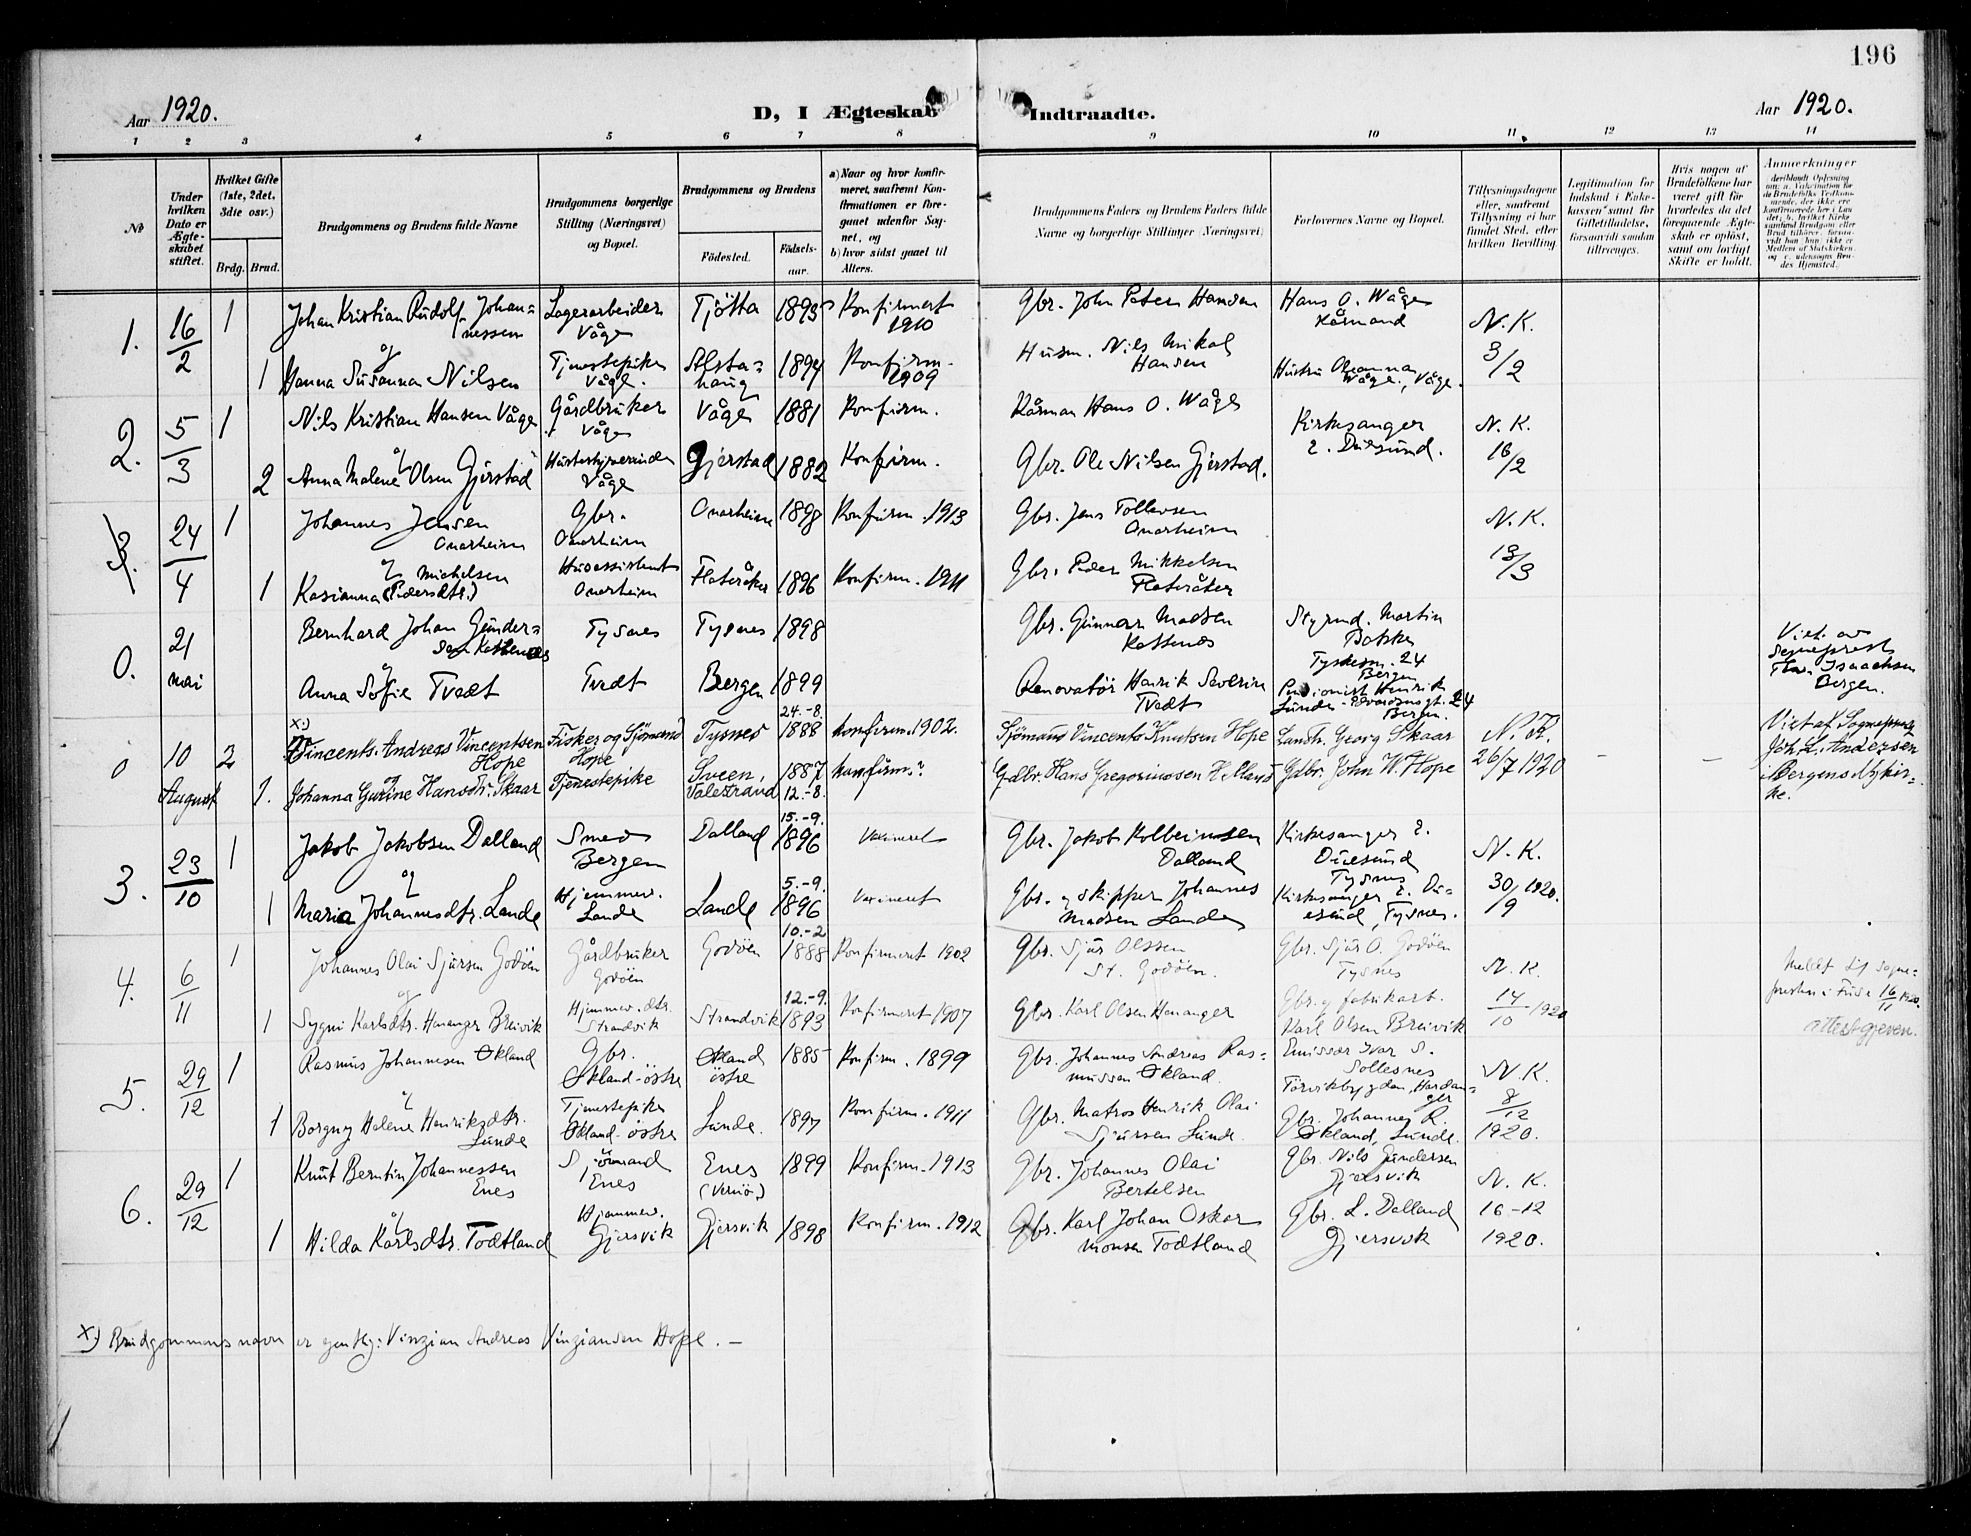 196
Aar 1920.
D, I Ægteskab Indtraadte.
Aar 1920.
1 2 3 4 5 6 7 8 9 10 11 12 13 14
No
Under hvilken Dato er Ægteskabet stiftet.
Hvilket Gifte (1ste, 2det, 3die osv.)
Brdg. Brud.
Brudgommens og Brudens fulde Navne
Brudgommens borgerlige Stilling (Næringsvei) og Bopæl.
Brudgommens og Brudens
Födested.
Födsels-aar.
a) Naar og hvor konfirmeret, saafremt Konfirmationen er foregaaet udenfor Sognet, og
b) hvor sidst gaaet til Alters.
Brudgommens Faders og Brudens Faders fulde Navne og borgerlige Stillinger (Næringsvei)
Forlovernes Navne og Bopæl.
Tillysningsdagene eller, saafremt Tillysning ei har fundet Sted, efter hvilken Bevilling.
Legitimation for Indskud i Enkekassen samt for Giftetilladelse, forsaavidt saadan tiltrænges.
Hvis nogen af Brudefolkene har været gift för hvorledes da det foregaaende Ægteskab er oplöst, samt om lovligt Skifte er holdt.
Anmerkninger
1. 16/2 1 Johan Kristian Rudolf Johannessen Lagerarbeider Våge Tjötta 1895 Konfirmert 1910 Gbr. John Peter Hansen Hans O. Wåge Kårmand N.K.
og
1 Hanna Susanna Nilsen Tjenestepike Våge. Alstahaug 1894 Konfirm. 1909 Husm. Nils Mikal Hansen Hustru Oleanna Wåge, Våge. 3/2
2. 5/3 1 Nils Kristian Hansen Våge Gårdbruker Våge Våge 1881 Konfirm. Kårman Hans O. Wåge Kirkesanger N.K.
og
2 Anna Malene Olsen Gjerstad Våge Gjerstad 1882 Konfirm. Gbr. Ole Nilsen Gjerstad. E. Duesund. 16/2
3. 24/4 1 Johannes Jensen Onarheim Gbr. Onarheim Onarheim 1898 Konfirm. 1913 Gbr. Jens Tollevsen Onarheim N.K.
og
1 Kasianna Michelsen (Pedersdtr.) Husassistent Onarheim Flateråker 1896 Konfirm. 1911 Gbr. Peder Mikkelsen Flateråker 13/3
0. 21 mai Bernhard Johan Gundersen Kattenes Tysnes Tysnes 1898 Gbr. Gunnar Madsen Kattenes Styrmd. Martin Bakke Tyskesm. 24 Bergen Viet av Sogneprest Thor Isaachsen Bergen.
og
Anna Sofie Tvedt Tvedt Bergen 1899 Renovatör Henrik Severin Tvedt Pensionist Henrik Lunde - Edvardsensgt. 24 Bergen.
0 10 August 2 x) Vincents Andreas Vincentsen Hope Fisker og Sjömand Hope Tysnes 24.-8. 1888 konfirm. 1902. Sjömand Vincents Knutsen Hope Landh. Georg Skaar N.K. Viet af Sogneprest Joh. L. Andersen i Bergens Nykirke.
og
1. Johanna Gurine Hansdtr. Skaar Tjenestepike Sveen, Valestrand 1887 12.-8. konfirm.? Gdbr. Hans Gregoriussen Helland Gdbr. John W. Hope 26/7 1920 - -
3. 23/10 1 Jakob Jakobsen Dalland Smed Bergen Dalland 15.-9. 1896 Vaxineret Gbr. Jakob Kolbeinsen Dalland Kirkesanger E. Duesund Tysnes N.K.
og
1 Maria Johannesdtr. Lande Hjemmev. Lande Lande 5.-9. 1896 Vaxineret Gbr. og skipper Johannes Madsen Lande Kirkesanger E. Duesund, Tysnes. 30/9 1920.
4. 6/11 1 Johannes Olai Sjursen Godöen Gårdbruker Godöen Godöen 10.-2 1888 Konfirmeret 1902 Gbr. Sjur Olssen St. Godöen. Gbr. Sjur O. Godöen Tysnes N.K. Meldt til sognepresten i Fusa 16/11 1920. Attest gjeven.
og
1 Sygni Karlsdtr. Henanger Breivik Hjemmev. dtr. Strandvik Strandvik 12.-9. 1893 Konfirmeret 1907 Gbr. Karl Olsen Henanger Gbr. og fabrikarb. Karl Olsen Breivik 14/10 - 1920
5. 29/12 1 Rasmus Johannesen Økland Gbr. Økland-östre Økland östre 1885 Konfirm. 1899 Gbr. Johannes Andreas Rasmussen Økland. Emissær Ivar S. Sollesnes Torvikbygden, Hardanger N.K.
og
1 Borgny Helene Henriksdtr. Lunde Tjenestepike Økland-östre Lunde. 1897 Konfirm. 1911 Gbr. Matros Henrik Olai Sjursen Lunde. Gbr. Johannes R. Økland, Lunde. 8/12 1920.
6. 29/12 1 Knut Berntin Johannessen Enes Sjömand Enes Enes 1899 Konfirm. 1913 Gbr. Johannes Olai Bertelsen Gbr. Nils Gundersen Gjersvik N.K.
og
1 Hilda Karlsdtr. Todtland Hjemmev. Gjersvik Gjersvik 1898 Konfirm. 1912 Gbr. Karl Johan Oskar Monsen Todtland Gbr. L. Dalland Gjersvik 16-12 1920.
x) Brudgommens navn er egentlig: Vinzian Andreas Vinziansen Hope. -